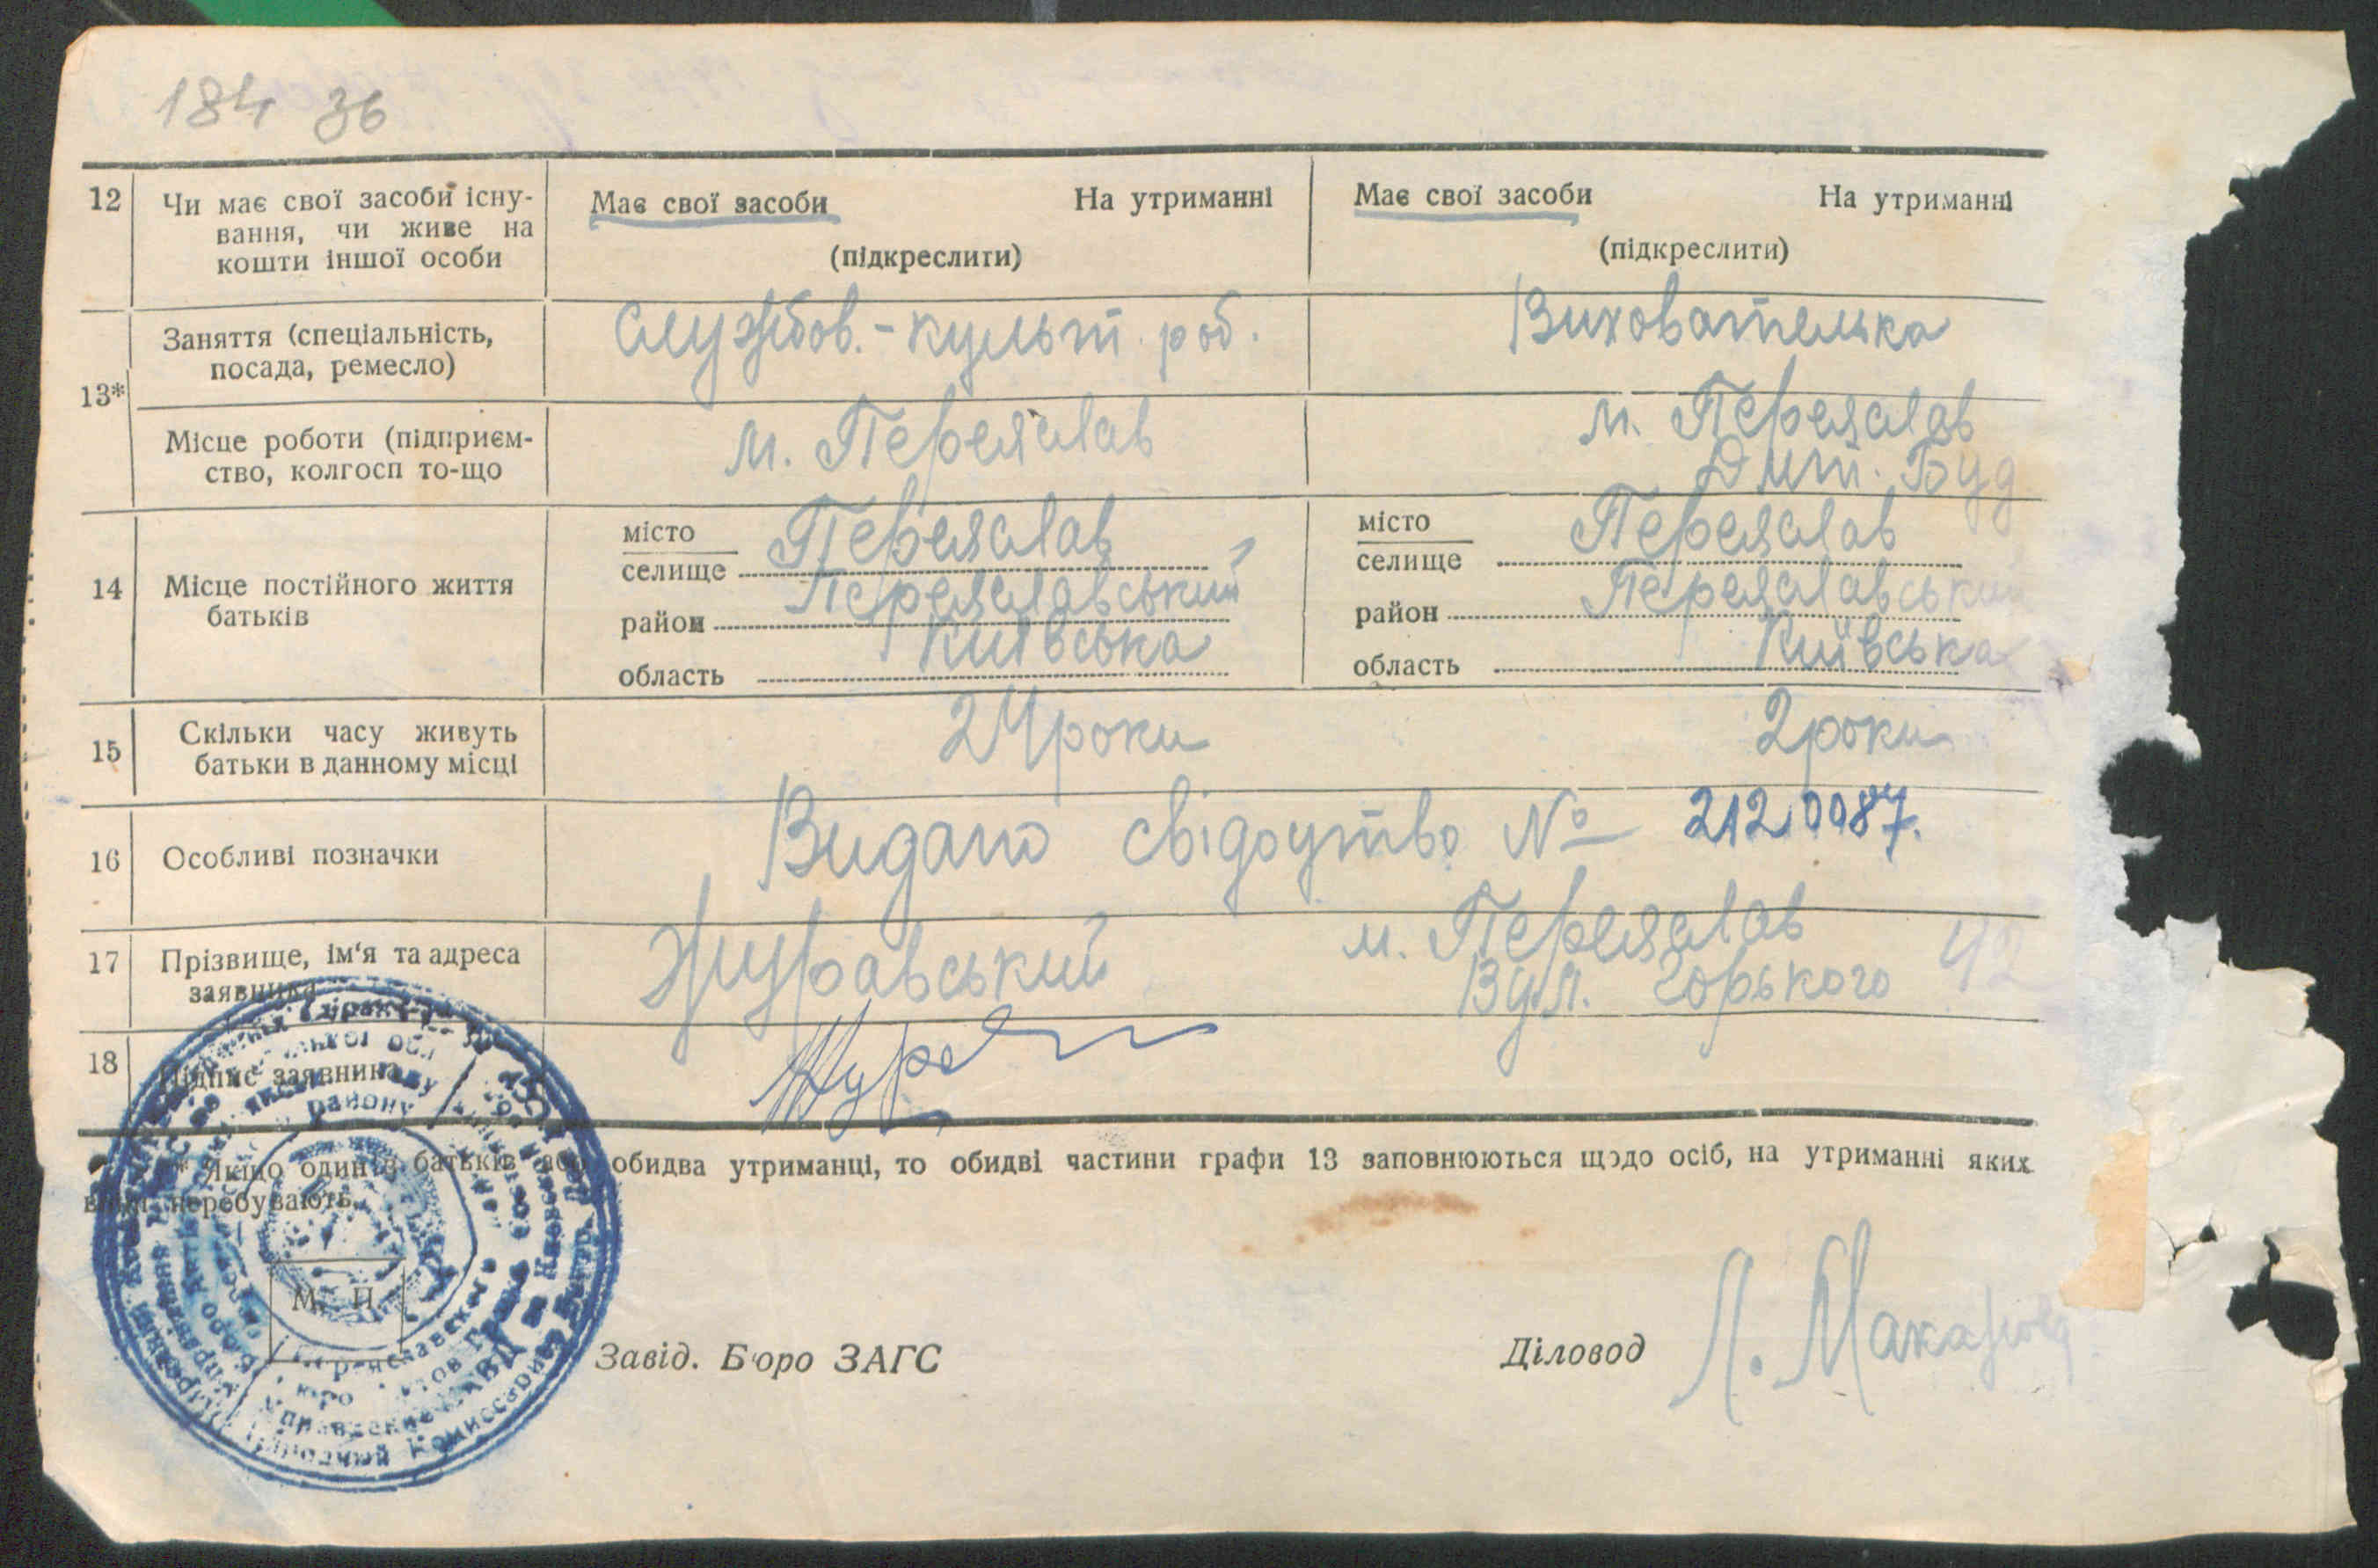 184 зв
12 Чи має свої засоби існу-
вання, чи живе на
кошти іншої особи
Має свої засоби На утриманні
(підкреслити)
Має свої засоби На утриманні
(підкреслити)
13*
Заняття (спеціальність,
посада, ремесло)
Службов.-культ. роб.
Вихователька
Місце роботи (підприєм-
ство, колгосп то-що
м. Переяслав
м. Переяслав
Дит. Буд
14 Місце постійного життя
батьків
місто
селище Переяслав
район Переяславський
область Київська
місто
селище Переяслав
район Переяславський
область Київська
15 Скільки часу живуть
батьки в данному місці
24 роки
2 роки
16 Особливі позначки
Видано свідоцтво № 2120087.
17 Прізвище, ім'я та адреса
заявника
Журавський
м. Переяслав
Вул. Горького 42
18 Підпис заявника
* Якщо один з батьків або обидва утриманці, то обидві частини графи 13 заповнюються щодо осіб, на утриманні яких
вони перебувають.
М. П.
Завід. Бюро ЗАГС
Діловод Л. Макарова